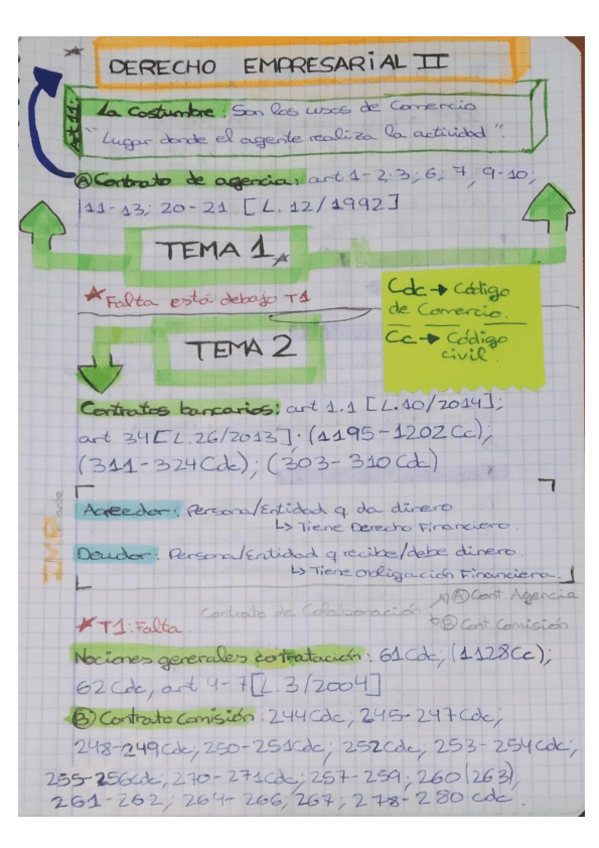 DERECHO EMPRESARIAL II
Art 11:
La Costumbre: Son los usos de Comercio
"Lugar donde el agente realiza la actividad"
Ⓐ Contrato de agencia: art 1-2-3; 6; 7; 9-10;
11-13; 20-21 [L. 12/1992]
TEMA 1
Falta está debajo T1
Cdc → Código
de Comercio.
Cc → Código
civil.
TEMA 2
Contratos bancarios: art 1.1 [L.10/2014];
art 34[L.26/2013]. (1195-1202 Cc);
(311-324 Cdc); (303-310 Cdc)
Acreedor: Persona/Entidad q da dinero
↳ Tiene Derecho Financiero.
Deudor: Persona/Entidad q recibe/debe dinero.
↳ Tiene Obligación Financiera.
Contrato de Colaboración
Ⓐ Cont. Agencia
Ⓑ Cont. Comisión
T1: Falta
Nociones generales contratación: 61 Cdc; (1128 Cc);
62 Cdc, art 4-7[L.3/2004]
Ⓑ Contrato Comisión: 244 Cdc; 245-247 Cdc;
248-249 Cdc; 250-251 Cdc; 252 Cdc; 253-254 Cdc;
255-256 Cdc; 270-271 Cdc; 257-259; 260 (263),
261-262; 264-266; 267; 278-280 cdc.